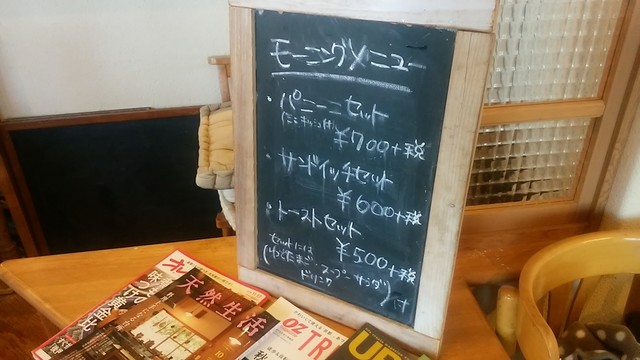 モーニングメニュー
・パニーニセット
(ミニキッシュ付)
¥700+税
・サンドイッチセット
¥600+税
・トーストセット
¥500+税
セットには
(ゆでたまご、スープ、サラダ
ドリンク)付
天然生活
10
OZ
TR
秋
黄金比